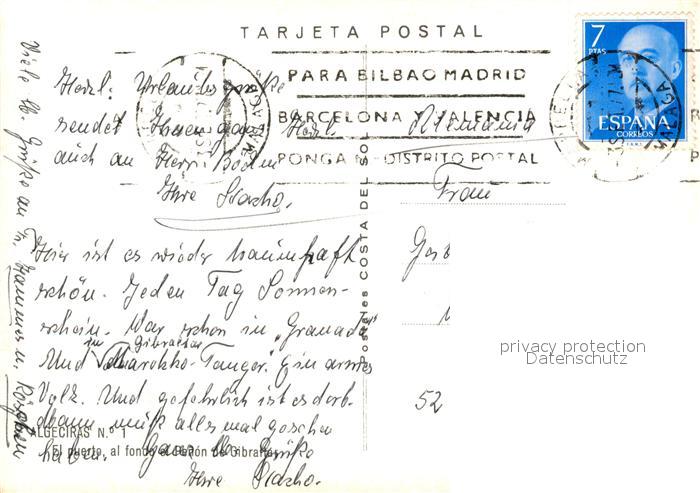 TARJETA POSTAL
7
PTAS
ESPAÑA
CORREOS
PARA BILBAO MADRID
BARCELONA Y VALENCIA
PONGA Nº DISTRITO POSTAL
MALAGA
MALAGA
Herzl. Urlaubsgrüße
sendet Ihnen ganz Herzl.
auch an Herrn
Ihre
Hier ist es wieder traumhaft
schön. Jeden Tag Sonnen-
schein. War schon in "Granada
Und in Gibraltar Marokko-Tanger. Ein armes
Volk. Und gefährlich ist es dort
muß alles mal gesehen
haben. Ganz lb. Grüße
Ihre
Viele lb. Grüße an Fr.
Alemania
Frau
52
Postales COSTA DEL SOL
ALGECIRAS N.º 1
El puerto, al fondo el Peñón de Gibraltar
privacy protection
Datenschutz